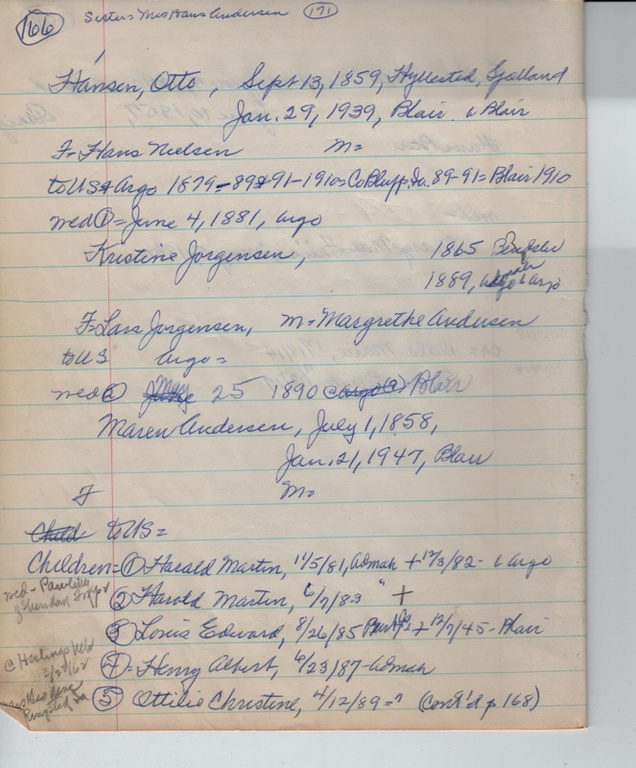 166 Sister = Mrs Hans Andersen 171
Hansen, Otto, Sept 13, 1859, Hyllested, Sjalland
Jan. 29, 1939, Blair. b Blair
F = Hans Nielsen M=
to US Argo 1879-89 91-1910 = Co Bluff, Ia. 89-91 = Blair 1910
med ① = June 4, 1881, Argo
Kristine Jorgensen, 1865
1889, Argo b Argo
F = Lars Jorgensen, M = Margrethe Andersen
to US Argo =
med ② May 25 1890 @ Argo (?) Blair
Maren Andersen, July 1, 1858,
Jan. 21, 1947, Blair
F M=
Child to US =
Children = ① Harald Martin, 11/5/81, Admah + 12/3/82 - b Argo
② Harold Martin, 6/7/83 " +
med - Pauline
③ Louis Edward, 8/26/85 + 12/7/45 - Blair
④ = Henry Albert, 6/23/87 - Admah
@ Hastings Neb
⑤ Ottilie Christine, 4/12/89 = ? (Cont'd p 168)